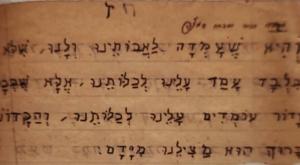 והִיא שֶׁעָמְדָה לַאֲבוֹתֵינוּ וְלָנוּ, שֶׁלֹּא
בִלְבַד עָמַד עָלֵינוּ לְכַלּוֹתֵנוּ, אֶלָּא
דוֹר עוֹמְדִים עָלֵינוּ לְכַלּוֹתֵנוּ, וְהַקָּדוֹשׁ
בָּרוּךְ הוּא מַצִּילֵנוּ מִיָּדָם.